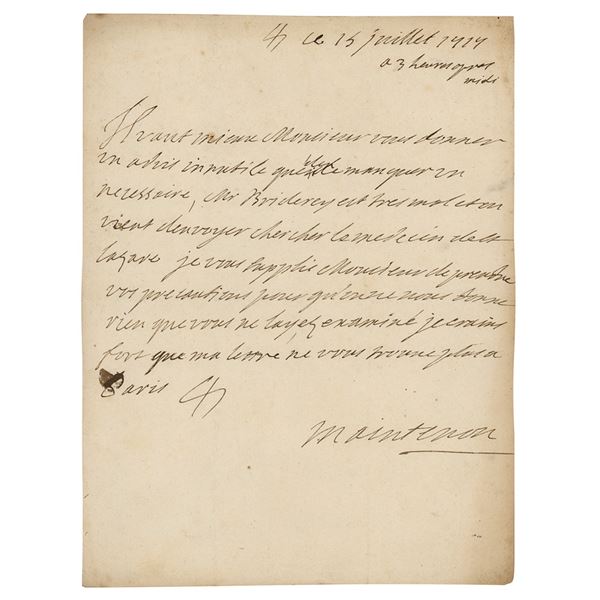 ce 15 juillet 1717
a 3 heures apres
midi
Il vaut mieux Monsieur vous donner
un advis innutile que d'en manquer un
necessaire, Mr Briderey est tres mal et on
vient d'envoyer chercher le medecin de st
lazare je vous supplie Monsieur de prendre
vos precautions pour qu'on ne nous donne
rien que vous ne layez examiné je crains
fort que ma lettre ne vous trouve plus a
Paris
Maintenon